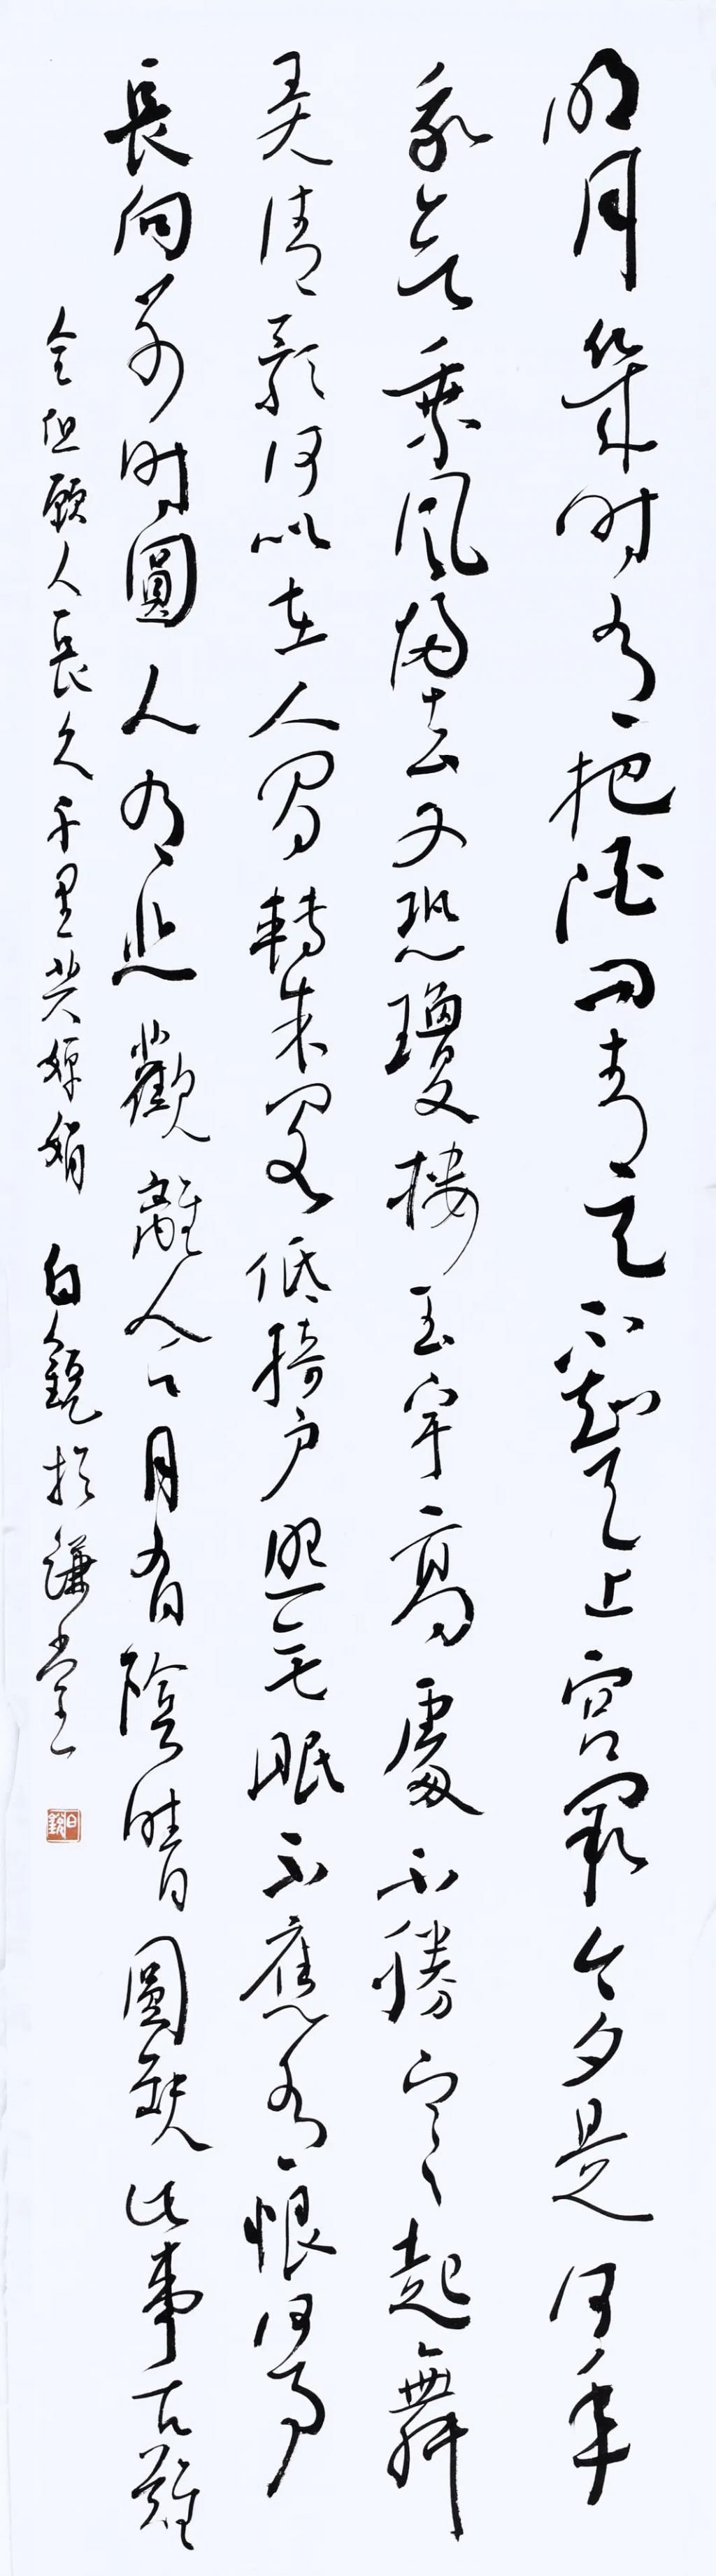 明月幾時有把酒問青天不知天上宮闕今夕是何年
我欲乘風歸去又恐瓊樓玉宇高處不勝寒起舞
弄清影何似在人間轉朱閣低綺戶照無眠不應有恨何事
長向別時圓人有悲歡離合月有陰晴圓缺此事古難
全但願人長久千里共嬋娟 白銳於謙堂